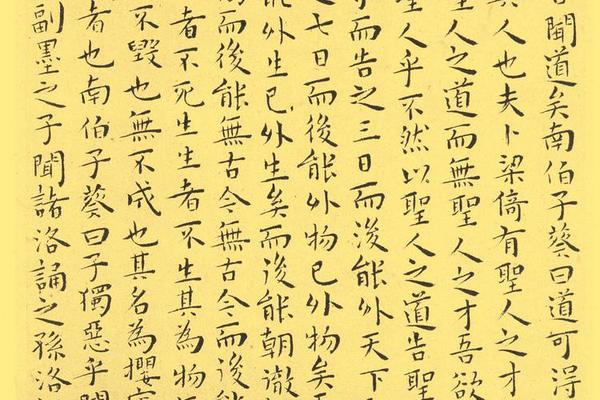 聞道矣南伯子葵曰道可得
人也夫卜梁倚有聖人之才
人之道而無聖人之才吾欲
聖人乎不然以聖人之道告聖
而告之三日而後能外天下
七日而後能外物已外物矣
能外生已外生矣而後能朝徹
而後能無古今無古今而後能
者不死生生者不生其為物
不毀也無不成也其名為攖寧
者也南伯子葵曰子獨惡乎聞
副墨之子聞諸洛誦之孫洛